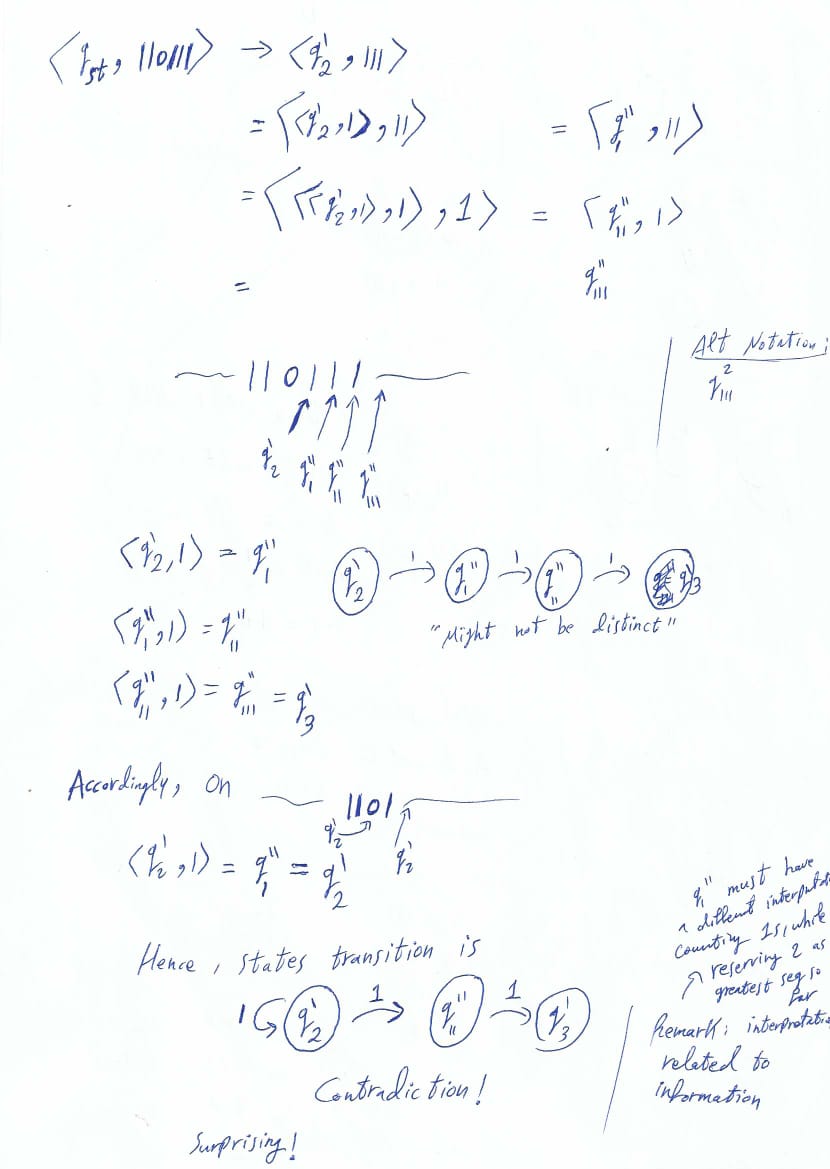 ⟨q_st, 110111⟩ → ⟨q'_2, 111⟩
= ⟨⟨q'_2, 1⟩, 11⟩ = ⟨q''_1, 11⟩
= ⟨⟨⟨q'_2, 1⟩, 1⟩, 1⟩ = ⟨q''_11, 1⟩
= q''_111
Alt Notation:
q^2_111
110111
q'_2 q''_1 q''_11 q''_111
⟨q'_2, 1⟩ = q''_1
q'_2 1→ q''_1 1→ q''_11 1→ q'_3
⟨q''_1, 1⟩ = q''_11
"Might not be distinct"
⟨q''_11, 1⟩ = q''_111 = q'_3
Accordingly, on
1101
q'_2 q'_2
⟨q'_2, 1⟩ = q''_1 = q'_2
q''_1 must have
a different
counting 1s, while
reserving 2 as
greatest seq so
far
Hence, states transition is
1 q'_2 1→ q''_11 1→ q'_3
Remark:
related to
information
Contradiction!
Surprising!